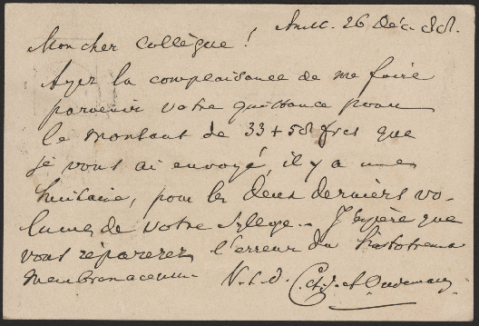 Amst. 26 Déc. 88.
Mon cher Collègue!
Ayez la complaisance de me faire
parvenir votre quittance pour
le montant de 33 + 58 frcs que
je vous ai envoyé, il y a une
huitaine, pour les deux derniers vo-
lumes de votre Sylloge.. J'espère que
vous réparerez l'erreur du
membranaceum. V. t. d. Oudemans